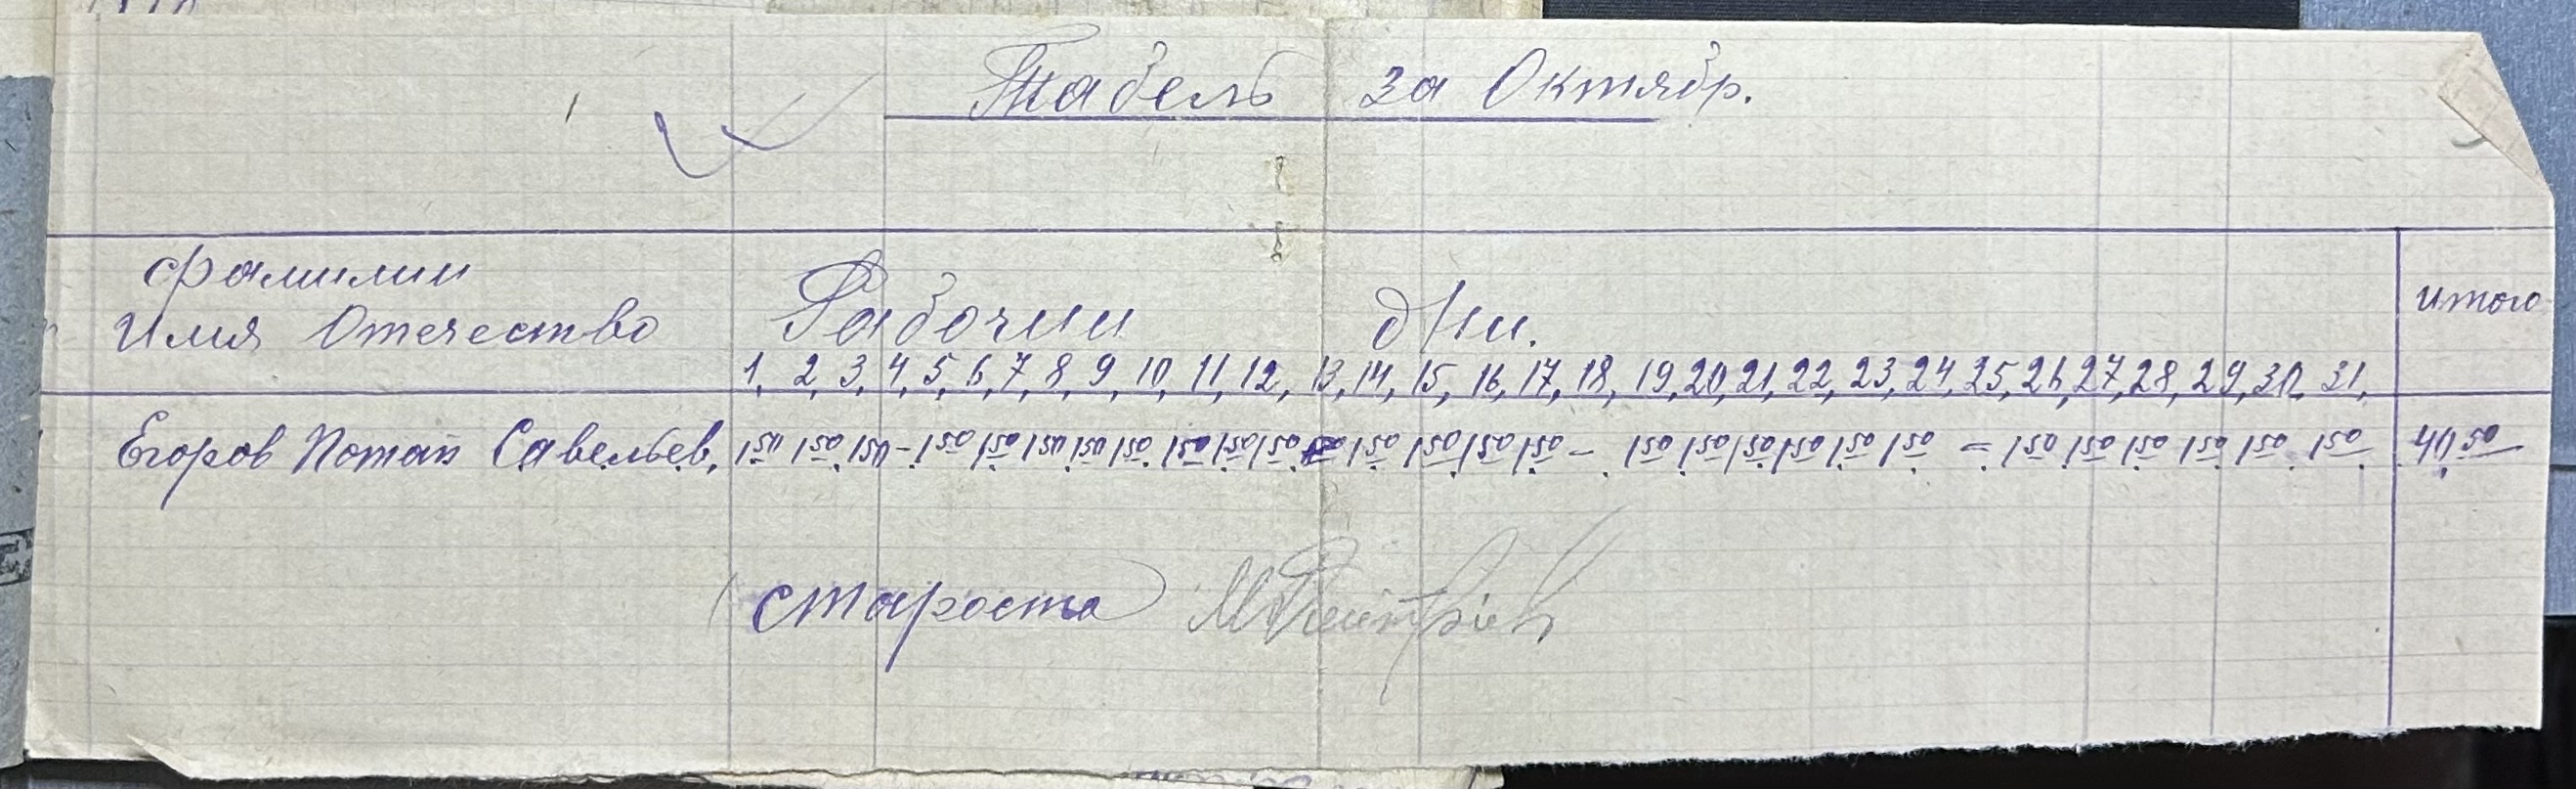 Табель за Октябр.
Фамилии
Имя Отечество Рабочии дни. итого
1, 2, 3, 4, 5, 6, 7, 8, 9, 10, 11, 12, 13, 14, 15, 16, 17, 18, 19, 20, 21, 22, 23, 24, 25, 26, 27, 28, 29, 30, 31,
Егоров Потап Савельев. 1 50 1 50 1 50 - 1 50 1 50 1 50 1 50 1 50 1 50 1 50 1 50 - 1 50 1 50 1 50 1 50 - 1 50 1 50 1 50 1 50 1 50 1 50 = 1 50 1 50 1 50 1 50 1 50 1 50 40 50
староста МДмитріев